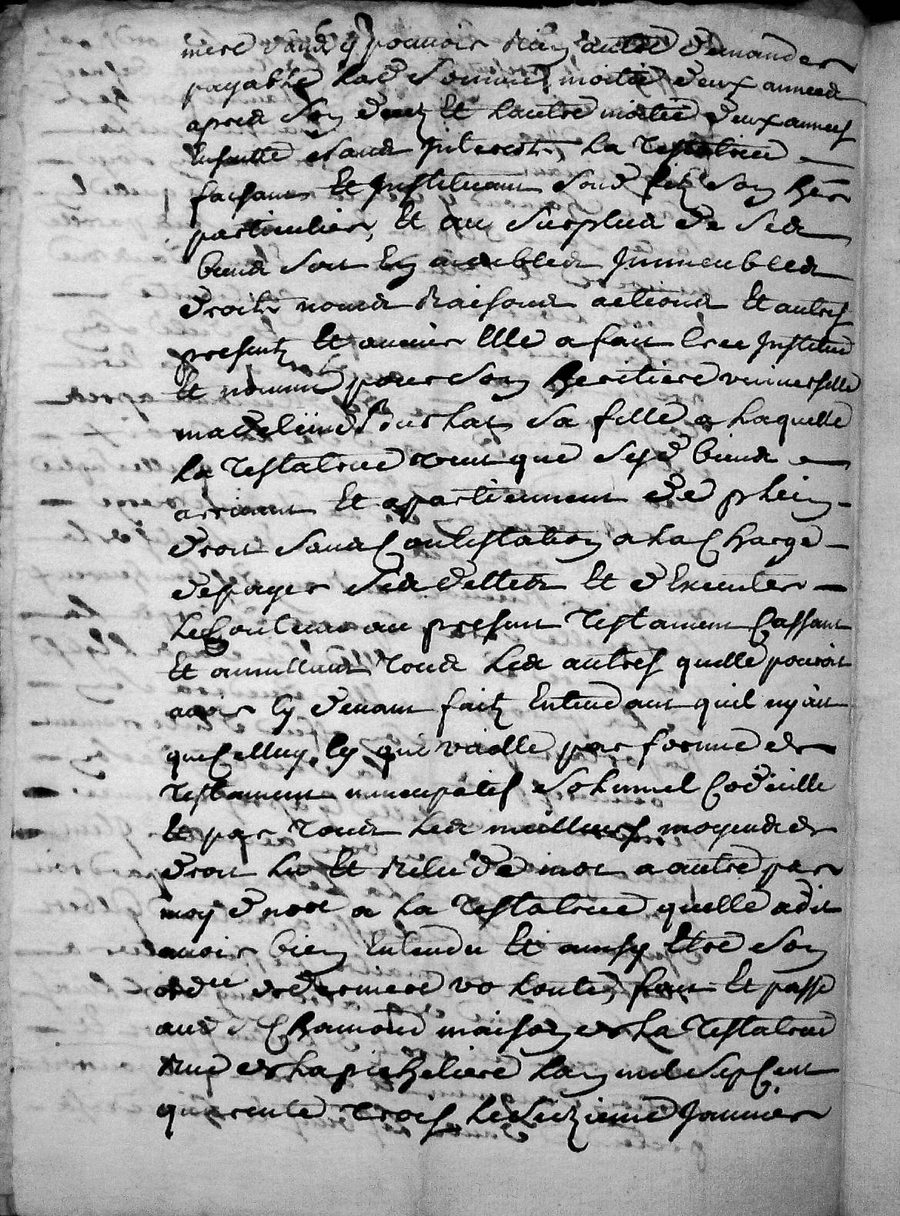 mere sans y pouvoir rien autre demander
payable lad somme moitié deux années
apres son deces Et lautre moitié deux années
Ensuitte sans Interests, La Testatrice
faisant Et Instituant sond fils son her
particulier, Et au surplus de ses
biens soit En meubles Immeubles
droits noms Raisons actions Et autres
presents Et avenir Elle a fait cree Institué
Et nommé pour son heritiere universelle
madeleine Souchat sa fille a laquelle
la Testatrice veut que sesd biens
arrivent Et apartiennent de plein
droit sans Contestation a la Charge
depayer ses dettes Et dExecuter
le Contenu au present Testament Cassant
Et annullant Tous les autres quelle pouroit
avoir Cy devant faits Entendant quil ny ait
que Celluy Cy qui vaille par forme de
Testament nuncupatif solemnel Codicille
Et par Tous les meilleurs moyens de
droit Lu Et Relu de mot a autre par
moy d notre a La Testatrice quelle a dit
avoir bien Entendu Et ainsy Etre son
ordre de derniere volonté, fait Et passé
aud St Chamond maison de La Testatrice
Rue de la Lan mil sept Cent
quarente Trois Le seizieme Janvier